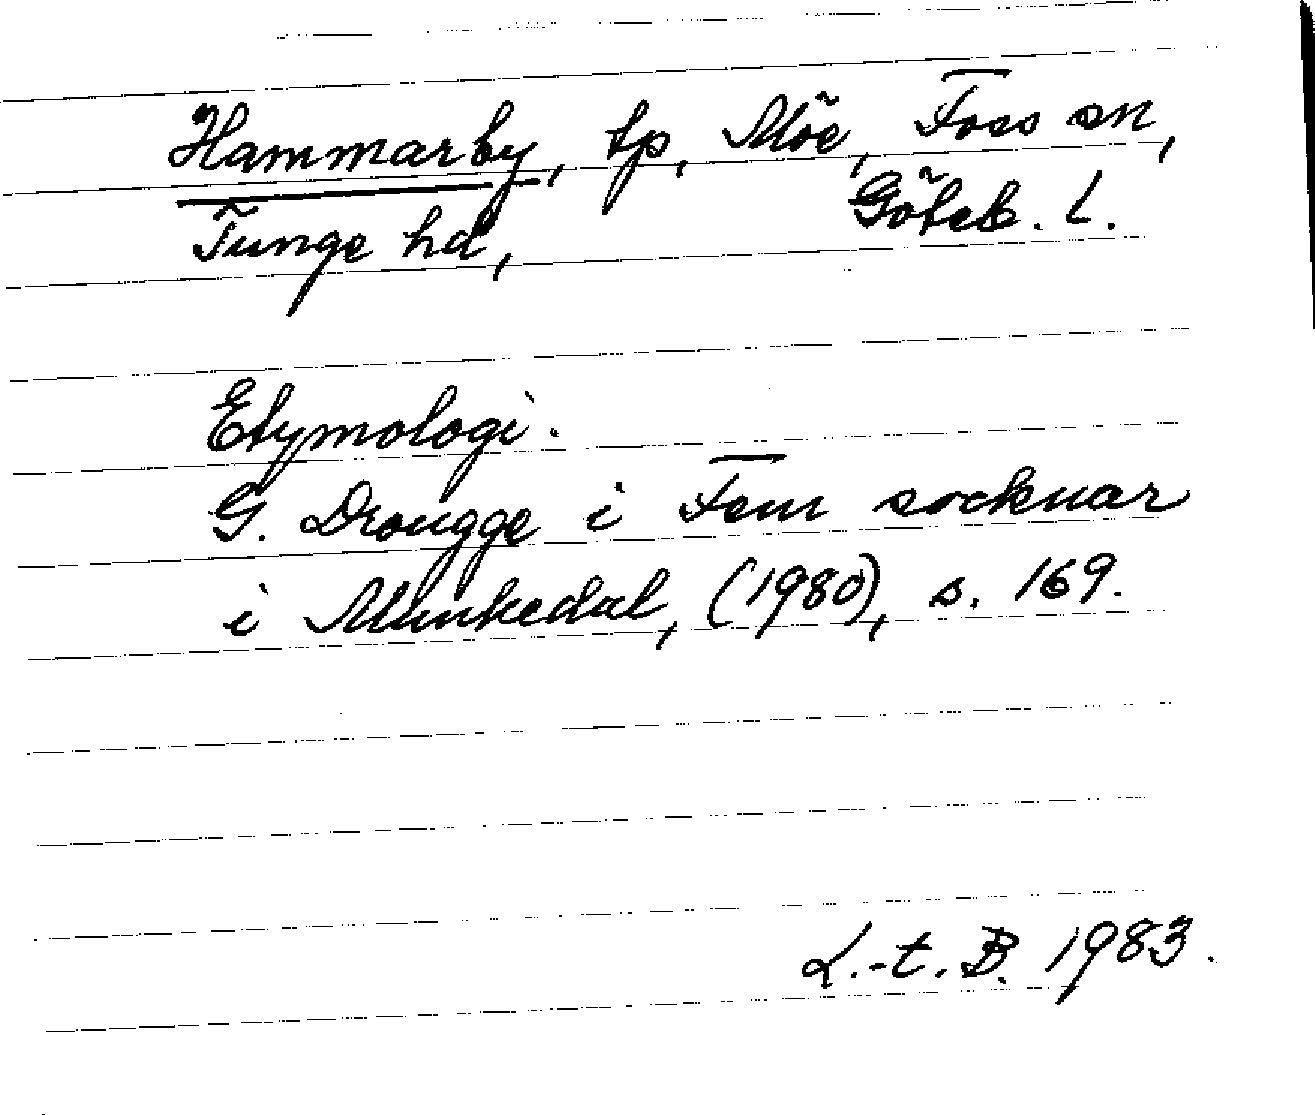 Hammarby, tp, Möe, Foss sn,
Tunge hd, Göteb. L.
Etymologi.
G. Drougge i Fem socknar
i Munkedal, (1980), s. 169.
L.-t. B. 1983.